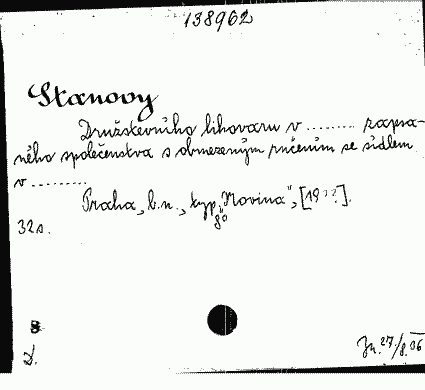 138962
Stanovy
Družstevního lihovaru v ........ zapsa-
ného společenstva s obmezeným ručením se sídlem
v .........
Praha, b.n., typ. "Novina", [19??].
8°
32 s.
D.
27/8.